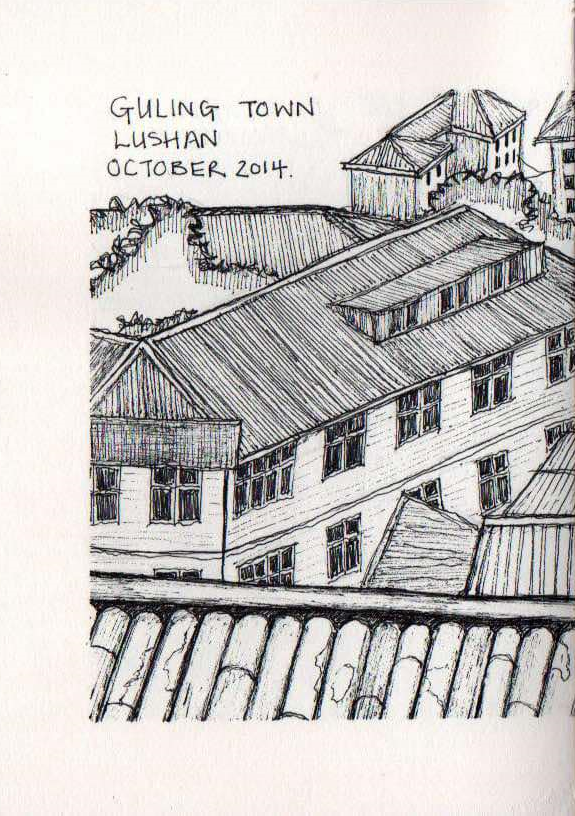 GULING TOWN
LUSHAN
OCTOBER 2014.